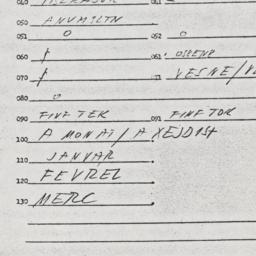 050 ANVMILTN
051 0 052 0
060 / 061
070 / VESNE/V
080 0
090 FINF TEK 091 FINF TOK
100 A MONAT/A XEJDISH
110 JANVAR.
120 FEVREL.
130 MERC.